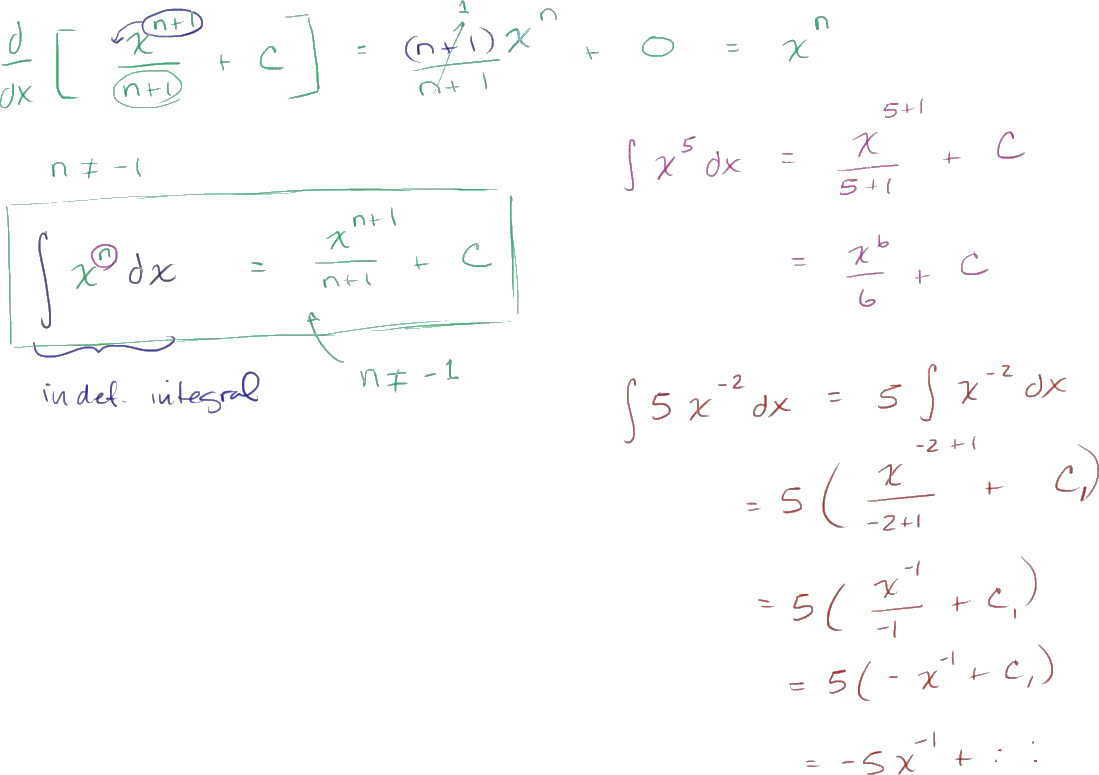 d/dx [ x^(n+1)/(n+1) + C ] = (n+1)x^n/(n+1) + 0 = x^n
1
n ≠ -1
∫ x^n dx = x^(n+1)/(n+1) + C
n ≠ -1
indef. integral
∫ x^5 dx = x^(5+1)/(5+1) + C
= x^6/6 + C
∫ 5 x^(-2) dx = 5 ∫ x^(-2) dx
= 5 ( x^(-2+1)/(-2+1) + C₁)
= 5 ( x^(-1)/(-1) + C₁)
= 5 ( - x^(-1) + C₁)
= -5x^(-1) +